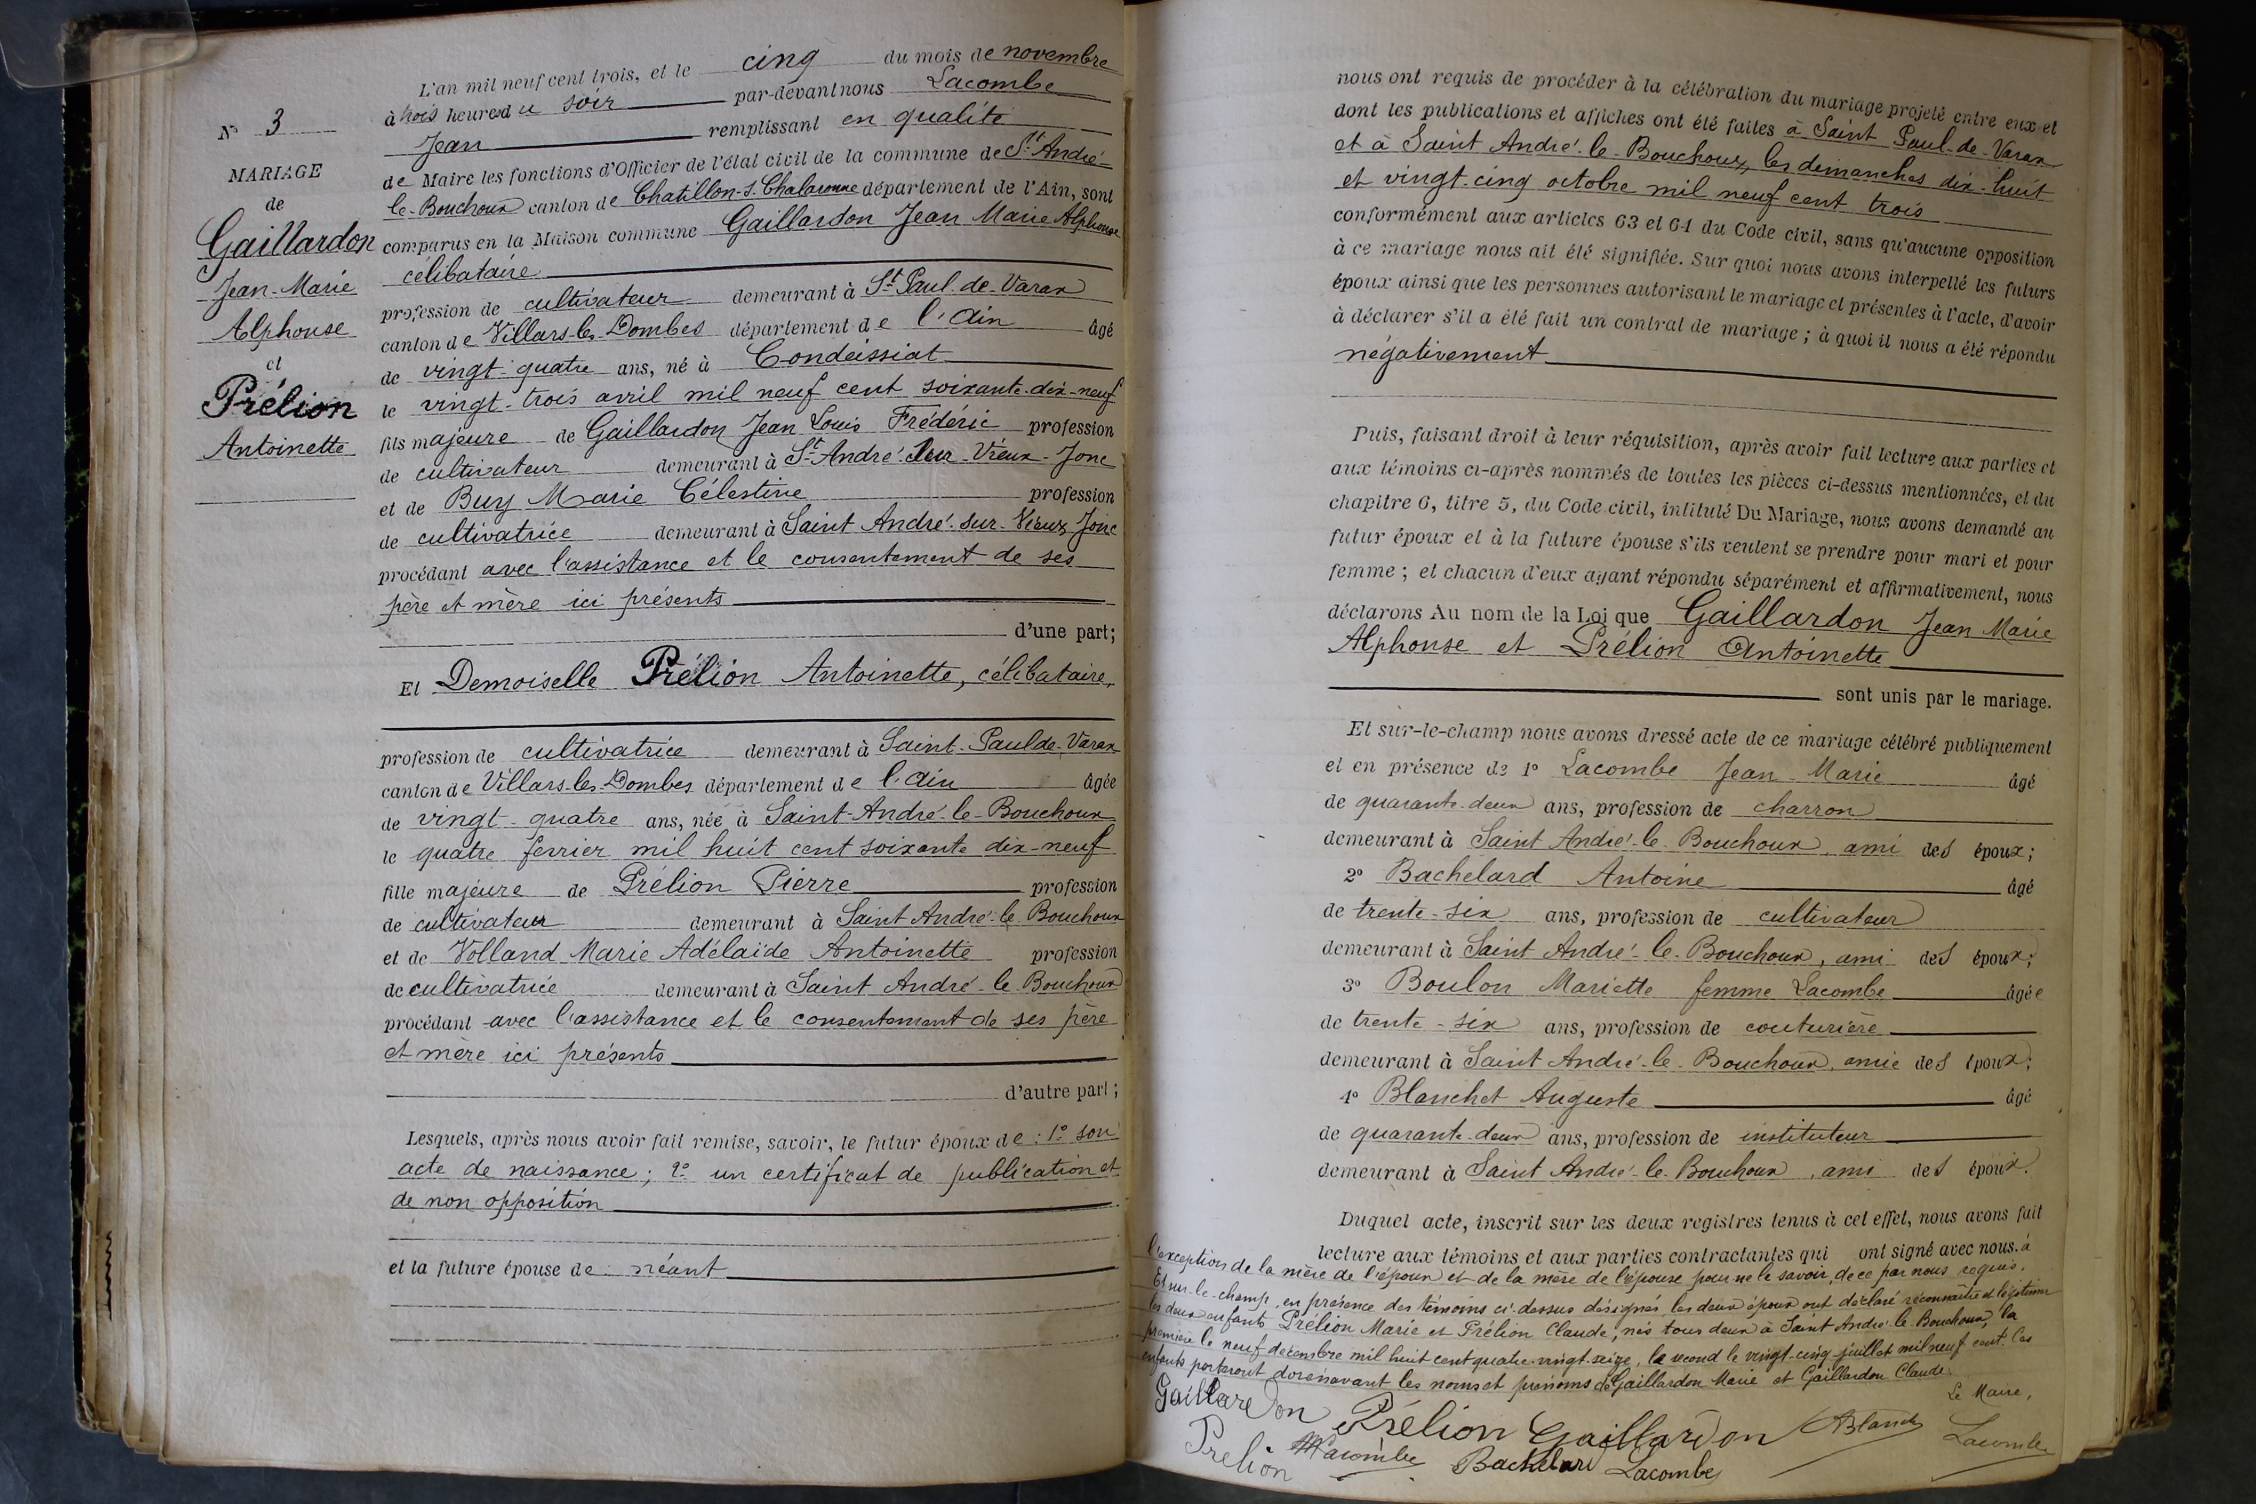 N° 3
MARIAGE
de
Gaillardon
Jean-Marie
Alphonse
et
Prélion
Antoinette
L'an mil neuf cent trois, et le cinq du mois de novembre
à trois heures du soir par-devant nous Lacombe
Jean remplissant en qualité
de Maire les fonctions d'Officier de l'état civil de la commune de St André
le-Bouchoux canton de Chatillon-s-Chalaronne département de l'Ain, sont
comparus en la Maison commune Gaillardon Jean Marie Alphonse
célibataire
profession de cultivateur demeurant à St Paul-de-Varax
canton de Villars-les-Dombes département de l'Ain âgé
de vingt-quatre ans, né à Condeissiat
le vingt-trois avril mil neuf cent soixante-dix-neuf
fils majeure de Gaillardon Jean Louis Frédéric profession
de cultivateur demeurant à St André sur-Vieux-Jonc
et de Buy Marie Célestine profession
de cultivatrice demeurant à Saint André-sur-Vieux Jonc
procédant avec l'assistance et le consentement de ses
père et mère ici présents
d'une part;
Et Demoiselle Prélion Antoinette, célibataire,
profession de cultivatrice demeurant à Saint-Paul de-Varax
canton de Villars-les-Dombes département de l'Ain âgée
de vingt-quatre ans, née à Saint-André-le-Bouchoux
le quatre fevrier mil huit cent soixante dix-neuf
fille majeure de Prélion Pierre profession
de cultivateur demeurant à Saint André-le-Bouchoux
et de Volland Marie Adélaïde Antoinette profession
de cultivatrice demeurant à Saint André-le-Bouchoux
procédant avec l'assistance et le consentement de ses père
et mère ici présents
d'autre part;
Lesquels, après nous avoir fait remise, savoir, le futur époux de : 1° son
acte de naissance; 2° un certificat de publication et
de non opposition
et la future épouse de néant
nous ont requis de procéder à la célébration du mariage projeté entre eux et
dont les publications et affiches ont été faites à Saint Paul-de-Varax
et à Saint André-le-Bouchoux, les dimanches dix-huit
et vingt-cinq octobre mil neuf cent trois
conformément aux articles 63 et 64 du Code civil, sans qu'aucune opposition
à ce mariage nous ait été signifiée. Sur quoi nous avons interpellé les futurs
époux ainsi que les personnes autorisant le mariage et présentes à l'acte, d'avoir
à déclarer s'il a été fait un contrat de mariage; à quoi il nous a été répondu
négativement
Puis, faisant droit à leur réquisition, après avoir fait lecture aux parties et
aux témoins ci-après nommés de toutes les pièces ci-dessus mentionnées, et du
chapitre 6, titre 5, du Code civil, intitulé Du Mariage, nous avons demandé au
futur époux et à la future épouse s'ils veulent se prendre pour mari et pour
femme; et chacun d'eux ayant répondu séparément et affirmativement, nous
déclarons Au nom de la Loi que Gaillardon Jean Marie
Alphonse et Prélion Antoinette
sont unis par le mariage.
Et sur-le-champ nous avons dressé acte de ce mariage célébré publiquement
et en présence de 1° Lacombe Jean-Marie âgé
de quarante-deux ans, profession de charron
demeurant à Saint André-le-Bouchoux, ami des époux;
2° Bachelard Antoine âgé
de trente-six ans, profession de cultivateur
demeurant à Saint André-le-Bouchoux, ami des époux;
3° Boulon Mariette femme Lacombe âgée
de trente-six ans, profession de couturière
demeurant à Saint André-le-Bouchoux, amie des époux;
4° Blanchet Auguste âgé
de quarante-deux ans, profession de instituteur
demeurant à Saint André-le-Bouchoux, ami des époux.
Duquel acte, inscrit sur les deux registres tenus à cet effet, nous avons fait
lecture aux témoins et aux parties contractantes qui ont signé avec nous. à
l'exception de la mère de l'époux et de la mère de l'épouse pour ne le savoir, de ce par nous requis.
Et sur-le-champ, en présence des témoins ci-dessus désignés les deux époux ont déclaré reconnaître et légitimer
les deux enfants Prélion Marie et Prélion Claude, nés tous deux à Saint André-le-Bouchoux, la
première le neuf décembre mil huit cent quatre-vingt-seize, le second le vingt-cinq juillet mil neuf cent. Ces
enfants porteront dorénavant les noms et prénoms de Gaillardon Marie et Gaillardon Claude.
Le Maire,
Gaillardon Prélion Gaillardon Lacombe
Prelion Bachelard Lacombe